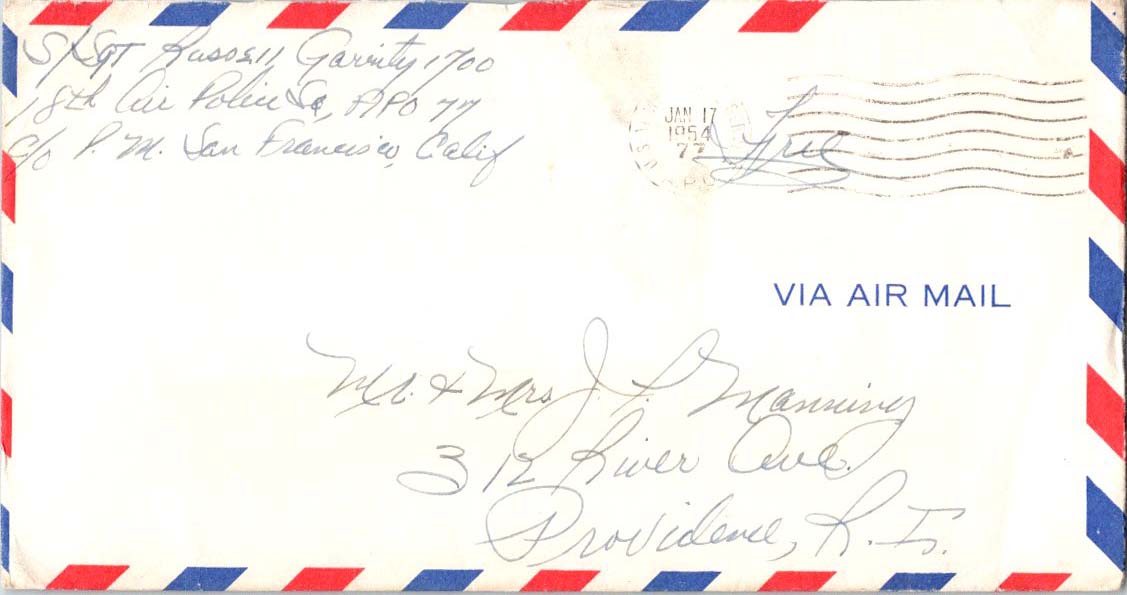 S/Sgt Russell Garrity 1700
18th Air Police Sq, APO 77
c/o P. M. San Francisco, Calif
JAN 17
1954
77
Free
VIA AIR MAIL
Mr. & Mrs J. P. Manning
312 River Ave.
Providence, R. I.